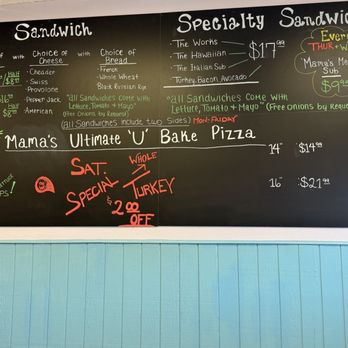 Sandwich
of with Choice of Cheese with Choice of Bread
Half
$8
- Cheader
- Swiss
- Provolone
- Pepper Jack
- American
- French
- Whole Wheat
- Black Russian Rye
Half
"all Sandwiches come with
Lettuce, Tomato + Mayo"
(Free Onions by Request)
(all Sandwiches include two Sides) Mon-Friday
Specialty Sandwic
- The Works
- The Hawaiian
- The Italian Sub
- Turkey, Bacon, Avocado
$17.99
"all Sandwiches Come with
Lettuce, Tomato + Mayo" (Free Onions by Reque
Every
Thur
Mama's Me
Sub
$9.95
Mama's Ultimate 'U' Bake Pizza
14" $14.99
16" $21.99
Sat. Special
Whole
Turkey
$2.00
OFF